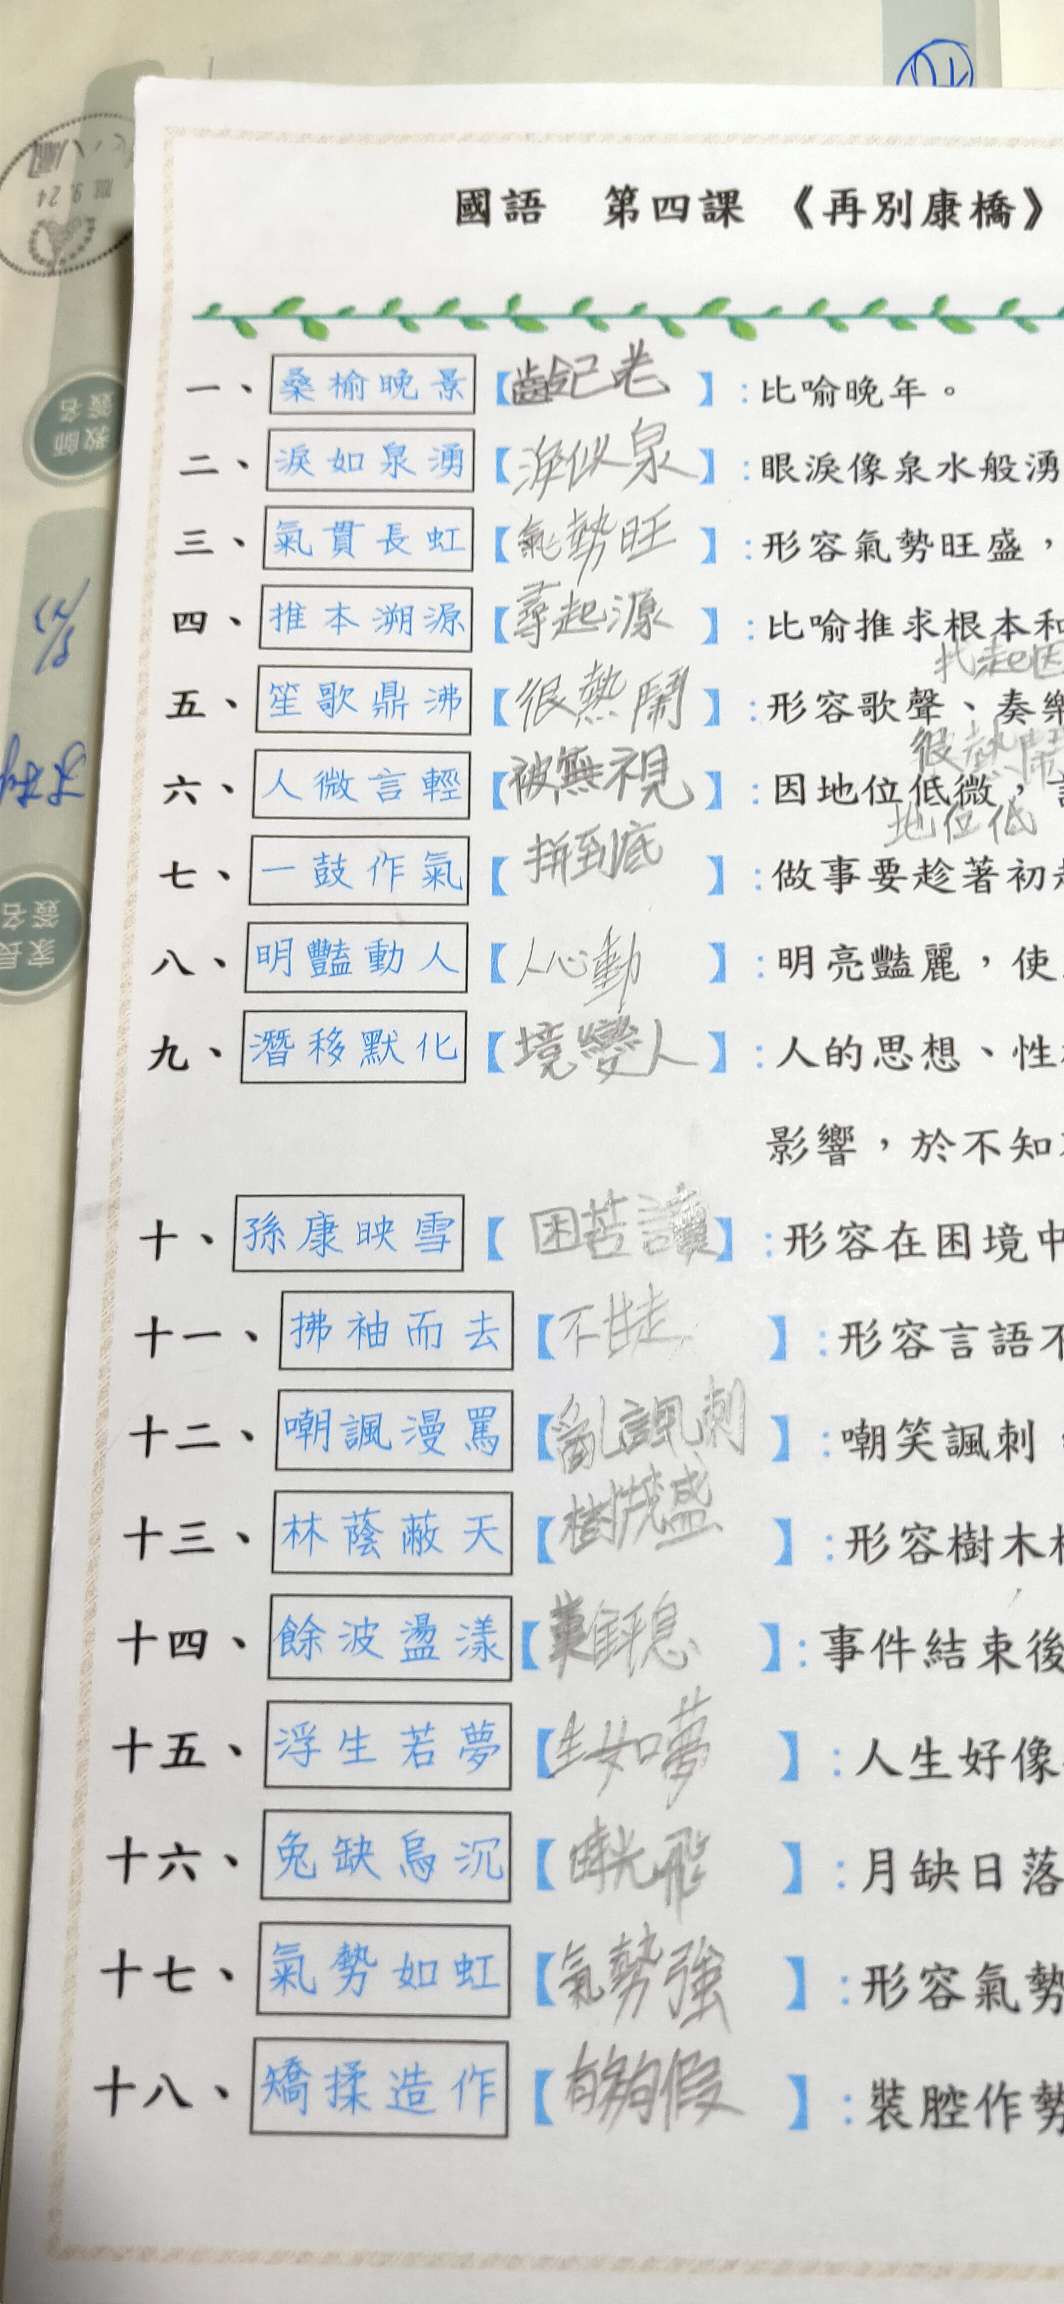 國語 第四課 《再別康橋》
一、桑榆晚景【齡已老】:比喻晚年。
二、淚如泉湧【淚似泉】:眼淚像泉水般湧
三、氣貫長虹【氣勢旺】:形容氣勢旺盛，
四、推本溯源【尋起源】:比喻推求根本和
找起因
五、笙歌鼎沸【很熱鬧】:形容歌聲、奏樂
很熱鬧
六、人微言輕【被無視】:因地位低微，
地位低
七、一鼓作氣【拚到底】:做事要趁著初
八、明豔動人【人心動】:明亮豔麗，使
九、潛移默化【境變人】:人的思想、性
影響，於不知
十、孫康映雪【困苦讀】:形容在困境中
十一、拂袖而去【不甘走】:形容言語不
十二、嘲諷漫罵【亂諷刺】:嘲笑諷刺
十三、林蔭蔽天【樹茂盛】:形容樹木
十四、餘波盪漾【難平息】:事件結束後
十五、浮生若夢【生如夢】:人生好像
十六、兔缺烏沉【時光飛】:月缺日落
十七、氣勢如虹【氣勢強】:形容氣勢
十八、矯揉造作【有夠假】:裝腔作勢
教師
簽名
家長
簽名